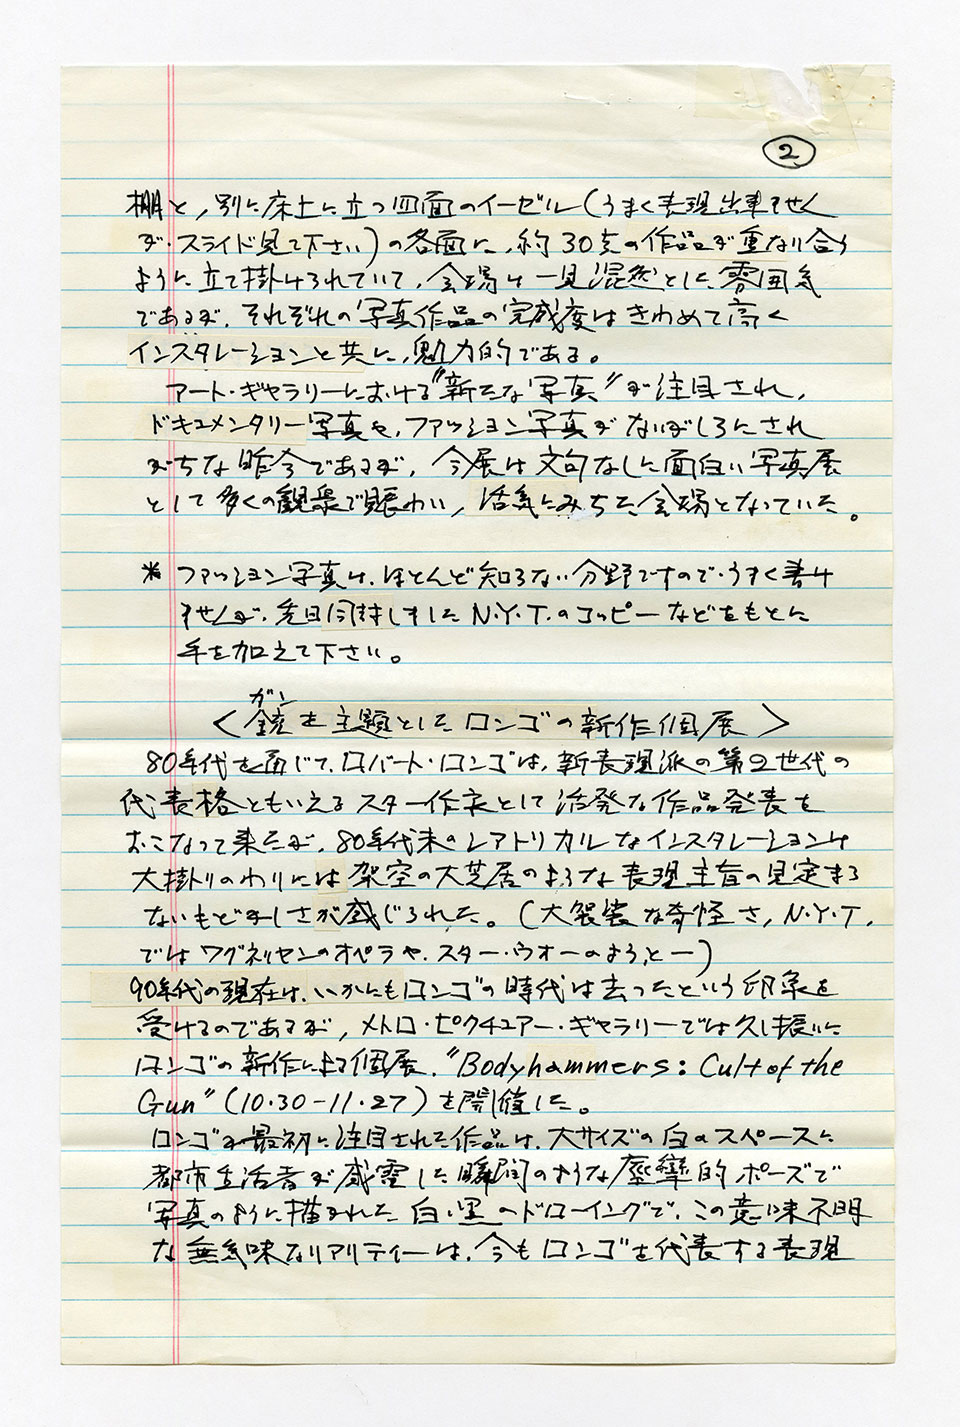 ②
棚と，別に床上に立つ四面のイーゼル（うまく表現出来ません
が・スライド見て下さい）の各面に，約30点の作品が重なり合う
ように立て掛けられていて，会場は一見混然とした雰囲気
であるが，それぞれの写真作品の完成度はきわめて高く
インスタレーションと共に，魅力的である。
アート・ギャラリーにおける"新たな写真"が注目され，
ドキュメンタリー写真や，ファッション写真がないがしろにされ
がちな昨今であるが，今展は文句なしに面白い写真展
として多くの観衆で賑わい，活気にみちた会場となっていた。
＊ ファッション写真は，ほとんど知らない分野ですので・うまく書け
ませんが，先日同封しましたN.Y.T.のコッピーなどをもとに
手を加えて下さい。
ガン
〈銃を主題としたロンゴの新作個展〉
80年代を通じて，ロバート・ロンゴは，新表現派の第2世代の
代表格ともいえるスター作家として活発な作品発表を
おこなって来たが，80年代末のシアトリカルなインスタレーションは
大掛りのわりには架空の大芝居のような表現主旨の見定まら
ないもどかしさが感じられた。（大袈裟な奇怪さ，N.Y.T.
ではワグネリヤンのオペラや，スター・ウオーのようと—）
90年代の現在は，いかにもロンゴの時代は去ったという印象を
受けるのであるが，メトロ・ピクチュアー・ギャラリーでは久し振りに
ロンゴの新作による個展，"Bodyhammers: Cult of the
Gun"（10.30-11.27）を開催した。
ロンゴが最初に注目された作品は，大サイズの白のスペースに
都市生活者が感電した瞬間のような痙攣的ポーズで
写真のように描かれた白い黒のドローイングで，この意味不明
な無気味なリアリティーは，今もロンゴを代表する表現